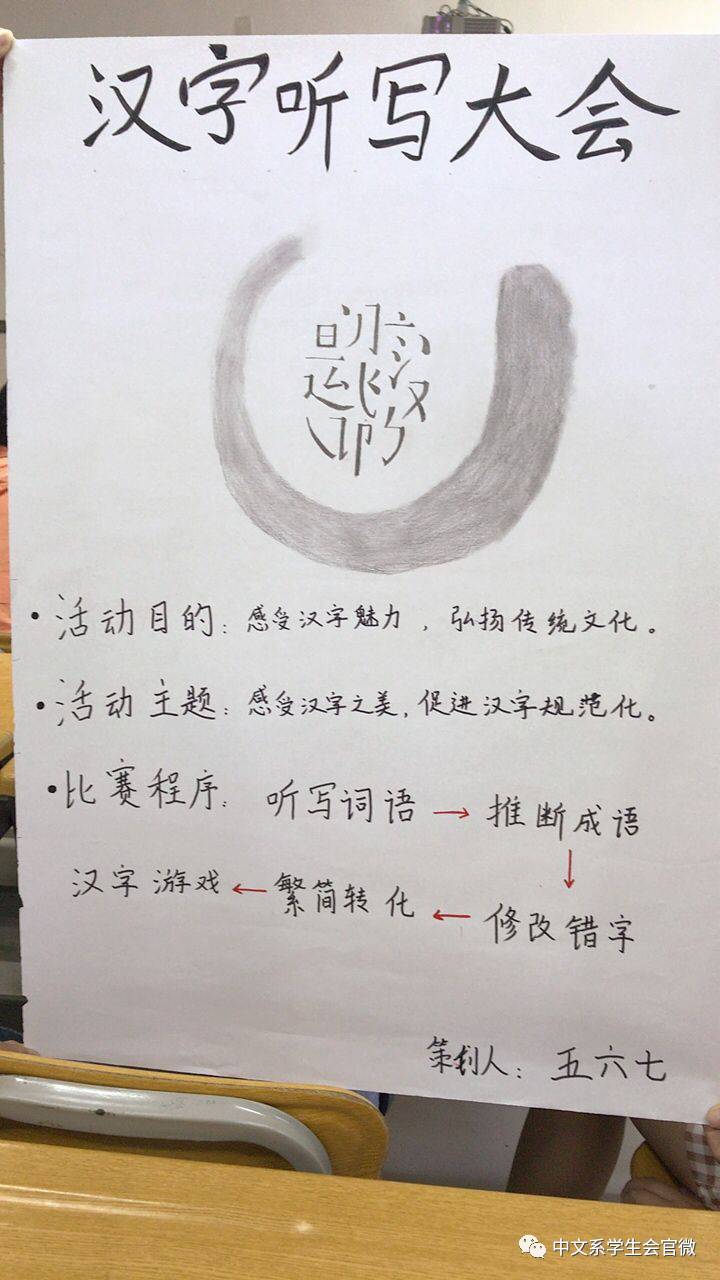 汉字听写大会
·活动目的：感受汉字魅力，弘扬传统文化。
·活动主题：感受汉字之美，促进汉字规范化。
·比赛程序：听写词语→推断成语
↓
汉字游戏←繁简转化←修改错字
策划人：五六七
中文系学生会官微